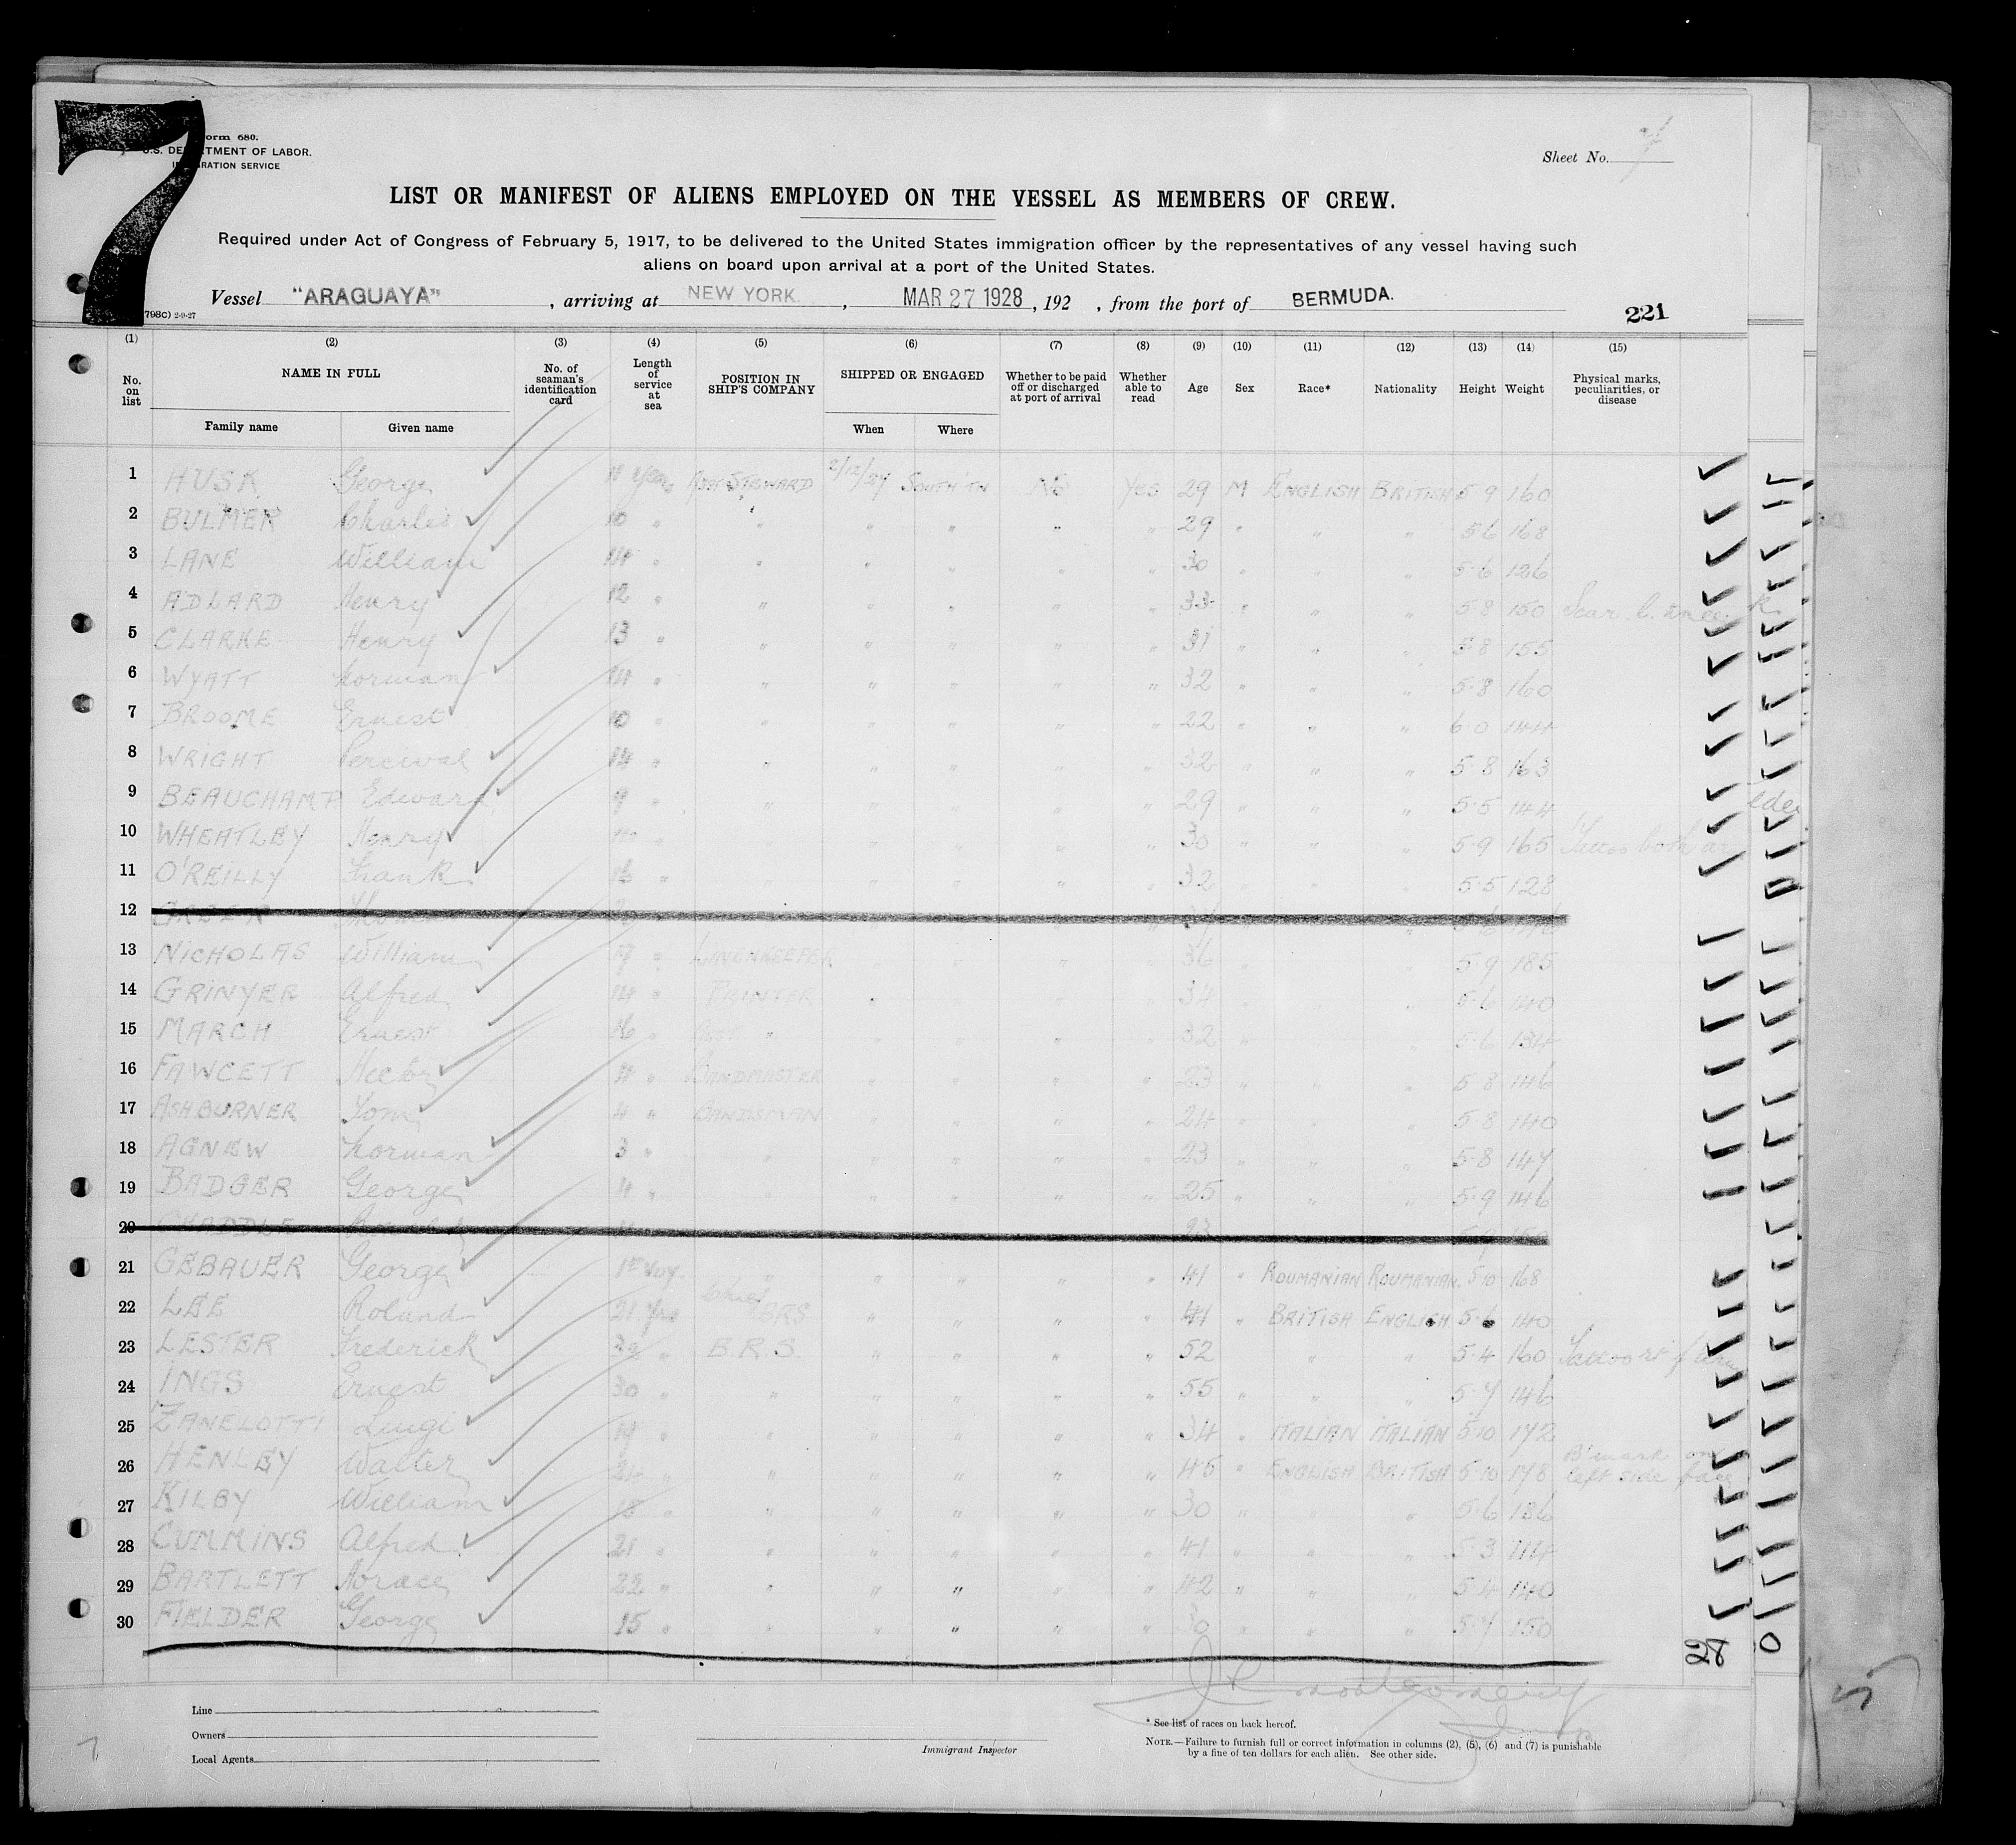 7
Form 680.
U.S. DEPARTMENT OF LABOR.
IMMIGRATION SERVICE
Sheet No. 7
LIST OR MANIFEST OF ALIENS EMPLOYED ON THE VESSEL AS MEMBERS OF CREW.
Required under Act of Congress of February 5, 1917, to be delivered to the United States immigration officer by the representatives of any vessel having such
aliens on board upon arrival at a port of the United States.
Vessel "ARAGUAYA" , arriving at NEW YORK. , MAR 27 1928 , 192 , from the port of BERMUDA.
798C) 2-9-27
221
(1) (2) (3) (4) (5) (6) (7) (8) (9) (10) (11) (12) (13) (14) (15)
No. on list NAME IN FULL Family name Given name No. of seaman's identification card Length of service at sea POSITION IN SHIP'S COMPANY SHIPPED OR ENGAGED When Where Whether to be paid off or discharged at port of arrival Whether able to read Age Sex Race* Nationality Height Weight Physical marks, peculiarities, or disease
1 HUSK George years STEWARD SOUTH'TN No Yes 29 M ENGLISH BRITISH 5 9 160
2 BULMER Charles 10 " " " " " " 29 " " " 5 6 168
3 LANE William 14 " " " " " " 30 " " " 5 6 126
4 ADLARD Henry 12 " " " " " " 33 " " " 5 8 150 Scar l. knee
5 CLARKE Henry 13 " " " " " " 31 " " " 5 8 155
6 WYATT Norman 14 " " " " " " 32 " " " 5 8 160
7 BROOME Ernest 10 " " " " " " 22 " " " 6 0 144
8 WRIGHT Percival 14 " " " " " " 32 " " " 5 8 163
9 BEAUCHAMP Edward 9 " " " " " " 29 " " " 5 5 144
10 WHEATLEY Henry " " " " " " 30 " " " 5 9 165 Tattoo both
11 O'REILLY Frank 16 " " " " " " 32 " " " 5 5 128
12
13 NICHOLAS William " LINENKEEPER " " " " 36 " " " 5 9 185
14 GRINYER Alfred 14 " PRINTER " " " " 34 " " " 5 6 140
15 MARCH Ernest 16 " ASST " " " " " 32 " " " 5 6 134
16 FAWCETT Hector " BANDMASTER " " " " 23 " " " 5 8 146
17 ASHBURNER Tom 4 " BANDSMAN " " " " 24 " " " 5 8 140
18 AGNEW Norman 3 " " " " " " 23 " " " 5 8 147
19 BADGER George 4 " " " " " " 25 " " " 5 9 146
20
21 GEBAUER George 1st Voy " " " " " 41 " ROUMANIAN ROUMANIAN 5 10 168
22 LEE Roland 21 yrs Chief BRS " " " " 41 " BRITISH ENGLISH 5 6 140
23 LESTER Frederick " B.R.S. " " " " 52 " " " 5 4 160 Tattoo rt f arm
24 INGS Ernest 30 " " " " " " 55 " " " 5 7 146
25 ZANELOTTI Luigi 19 " " " " " " 34 " ITALIAN ITALIAN 5 10 172
26 HENLEY Walter " " " " " " 45 " ENGLISH BRITISH 5 10 178 B'mark on left side face
27 KILBY William 15 " " " " " " 30 " " " 5 6 136
28 CUMMINS Alfred 21 " " " " " " 41 " " " 5 3 114
29 BARTLETT Horace 22 " " " " " " 42 " " " 5 4 140
30 FIELDER George 15 " " " " " " 30 " " " 5 7 150
28
0
Line
Owners
Local Agents
Immigrant Inspector
* See list of races on back hereof.
NOTE.—Failure to furnish full or correct information in columns (2), (5), (6) and (7) is punishable
by a fine of ten dollars for each alien. See other side.